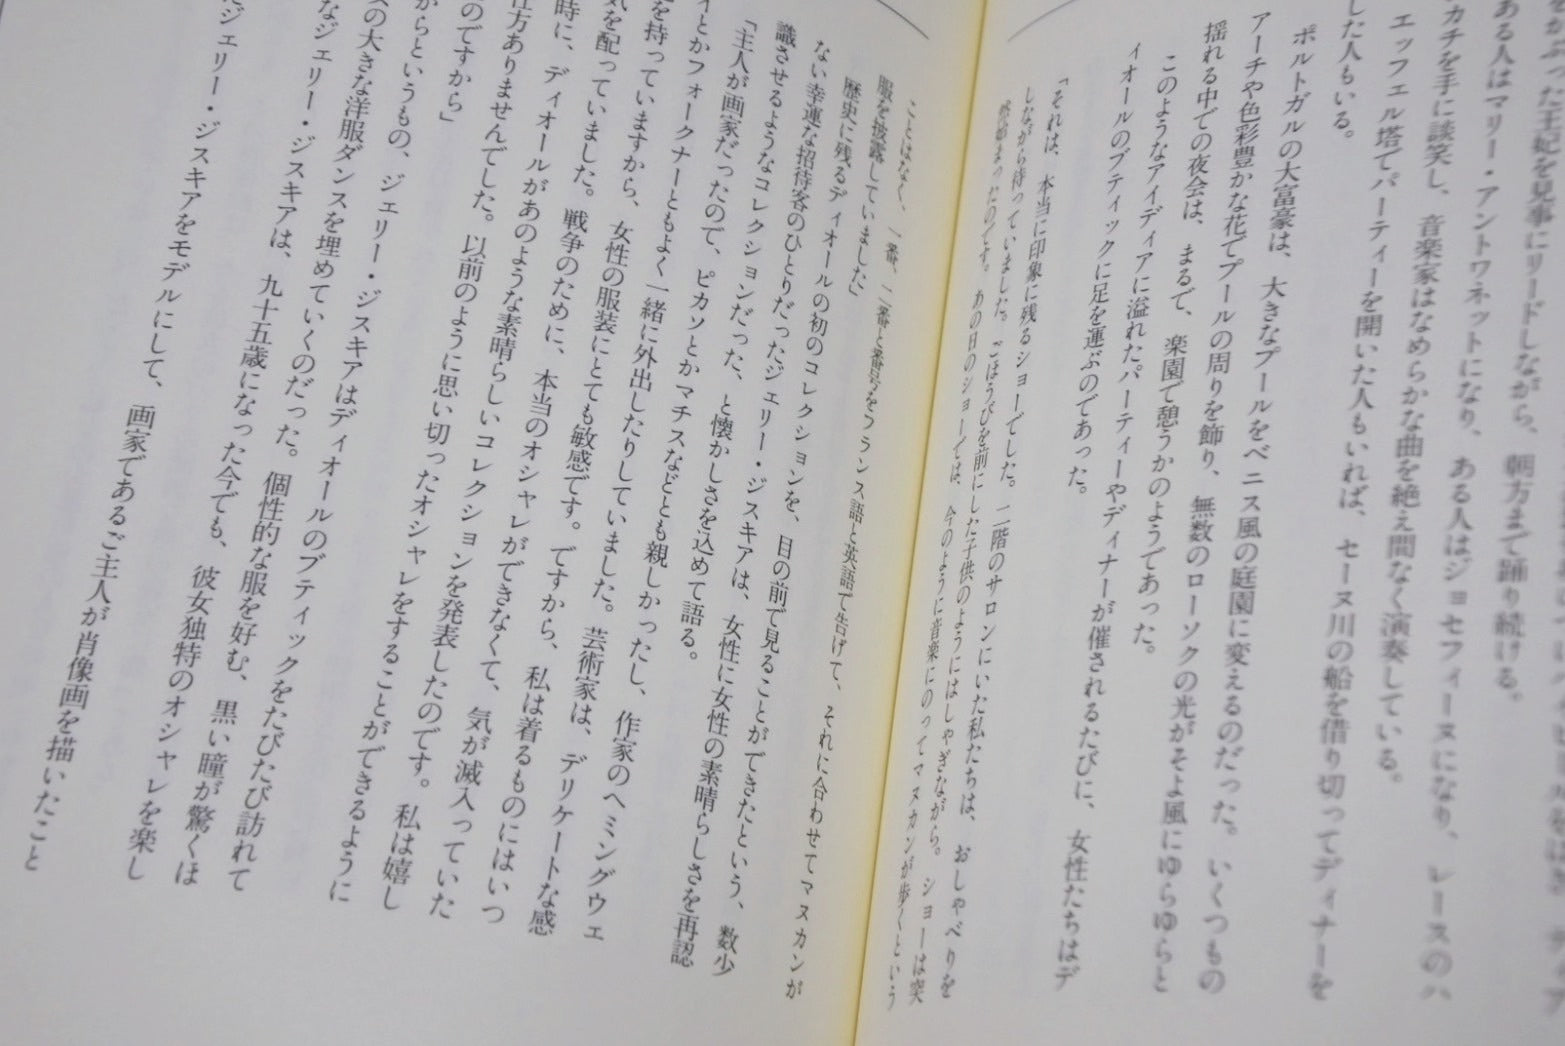 をかぶった王妃を見事にリードしながら、朝方まで踊り続ける。
ある人はマリー・アントワネットになり、ある人はジョセフィーヌになり、レースのハ
カチを手に談笑し、音楽家はなめらかな曲を絶え間なく演奏している。
エッフェル塔でパーティーを開いた人もいれば、セーヌ川の船を借り切ってディナーを
した人もいる。
ポルトガルの大富豪は、大きなプールをベニス風の庭園に変えるのだった。いくつもの
アーチや色彩豊かな花でプールの周りを飾り、無数のローソクの光がそよ風にゆらゆらと
揺れる中での夜会は、まるで、楽園で憩うかのようであった。
このようなアイディアに溢れたパーティーやディナーが催されるたびに、女性たちはデ
ィオールのブティックに足を運ぶのであった。
「それは、本当に印象に残るショーでした。二階のサロンにいた私たちは、おしゃべりを
しながら待っていました。ごほうびを前にした子供のようにはしゃぎながら。ショーは突
然始まったのです。あの日のショーでは、今のように音楽にのってマヌカンが歩くという
ことはなく、一番、二番と番号をフランス語と英語で告げて、それに合わせてマヌカンが
服を披露していました」
歴史に残るディオールの初のコレクションを、目の前で見ることができたという、数少
ない幸運な招待客のひとりだったジェリー・ジスキアは、女性に女性の素晴らしさを再認
識させるようなコレクションだった、と懐かしさを込めて語る。
「主人が画家だったので、ピカソとかマチスなどとも親しかったし、作家のヘミングウェ
イとかフォークナーともよく一緒に外出したりしていました。芸術家は、デリケートな感
を持っていますから、女性の服装にとても敏感です。ですから、私は着るものにはいつ
気を配っていました。戦争のために、本当のオシャレができなくて、気が滅入っていた
時に、ディオールがあのような素晴らしいコレクションを発表したのです。私は嬉し
仕方ありませんでした。以前のように思い切ったオシャレをすることができるように
のですから」
からというもの、ジェリー・ジスキアはディオールのブティックをたびたび訪れて
スの大きな洋服ダンスを埋めていくのだった。個性的な服を好む、黒い瞳が驚くほ
なジェリー・ジスキアは、九十五歳になった今でも、彼女独特のオシャレを楽し
だジェリー・ジスキアをモデルにして、画家であるご主人が肖像画を描いたこと